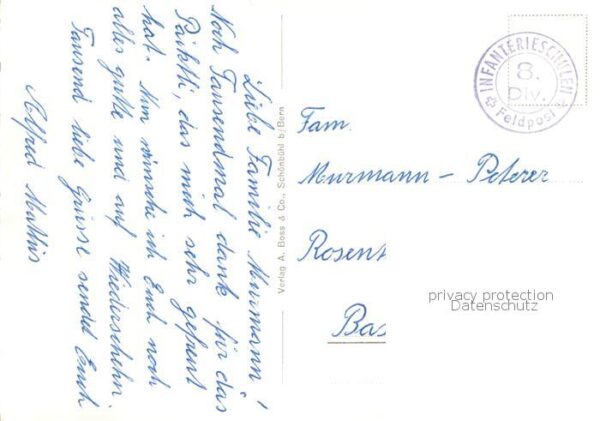 Liebe Familie Murmann!
Noch Tausendmal dank für das
Päckli, das mich sehr gefreut
hat. Nun wünsche ich Euch noch
alles gutte und auf Wiedersehehn.
Tausend liebe Grüsse sendet Euch
Alfred Mathis
Verlag A. Boss & Co., Schönbühl b/Bern
INFANTERIESCHULEN
8.
Div.
Feldpost
Fam.
Murmann - Peterer
Rosent
Bas
privacy protection
Datenschutz